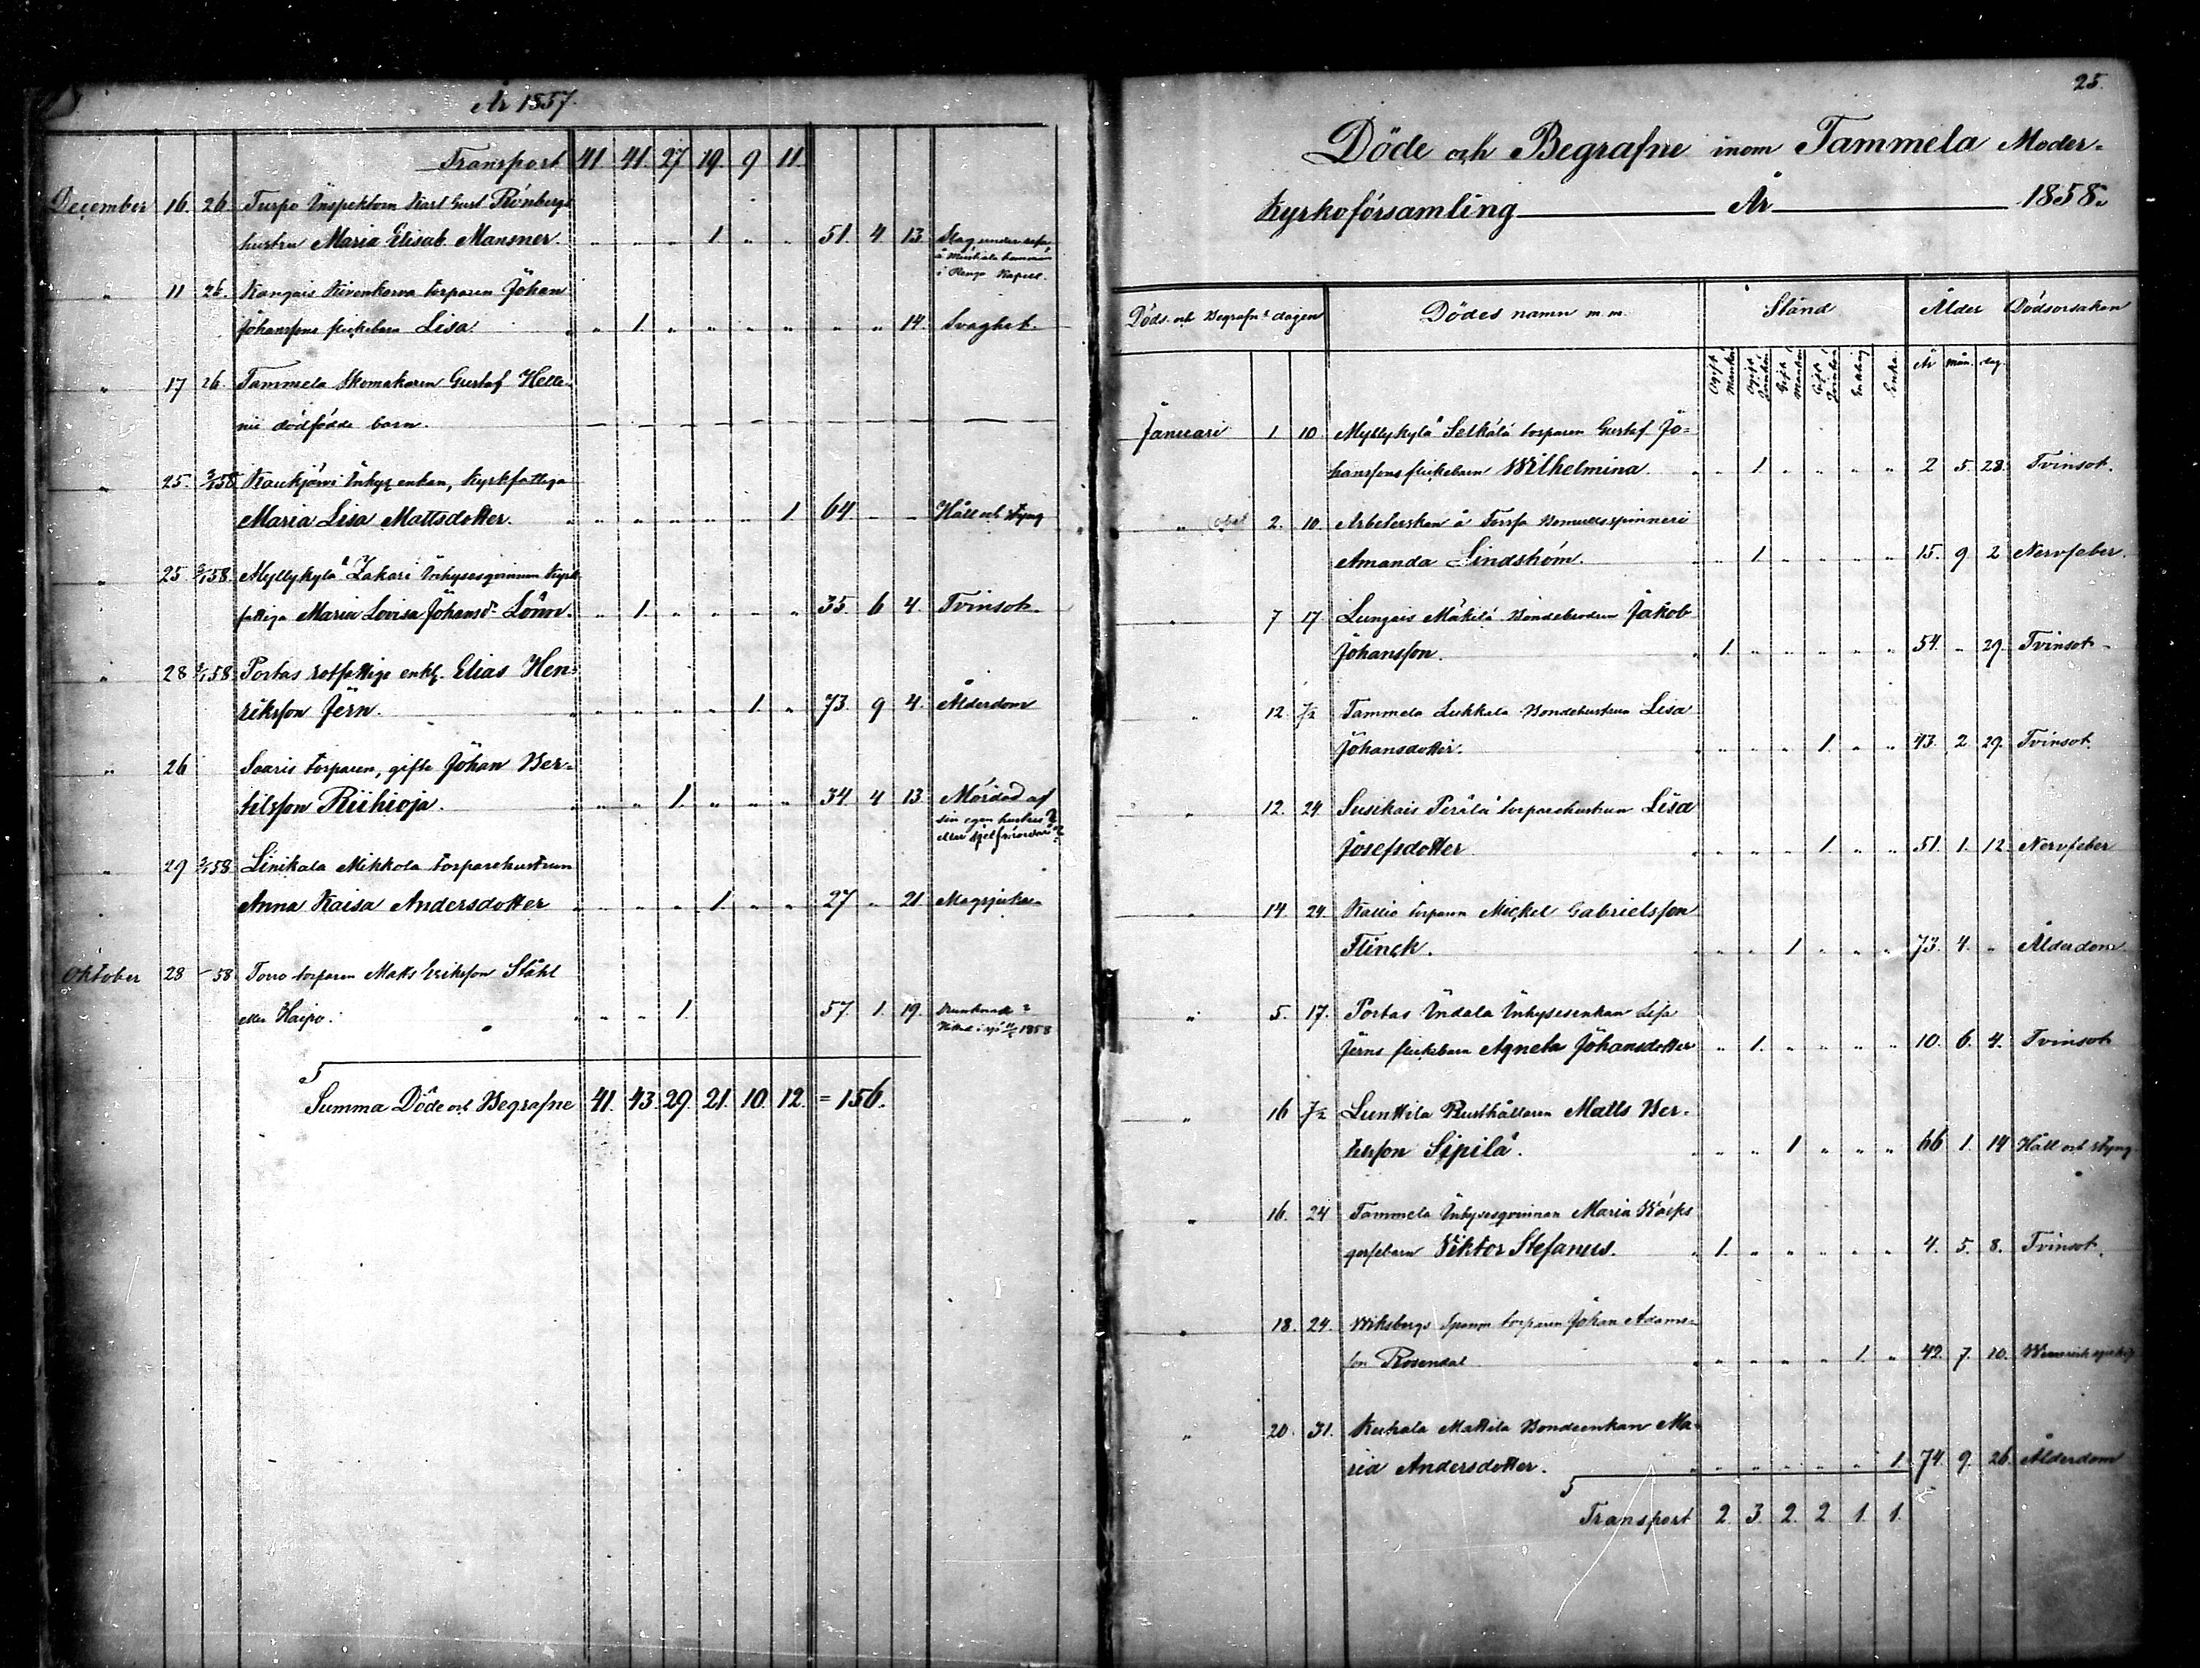 År 1857.
Transport 41. 41. 27. 19. 9 11.
December 16. 26. Turpo Inspektorn Karl Gust Rönbergs
hustru Maria Elisab. Mansner. " " " 1. " " 51. 4. 13. Slag
i Kapell.
" 11 26. Kangais Kivenkorva torparen Johan
Johanssons flickebarn Lisa. " 1. " " " " " " 14. Svaghet.
" 17 26. Tammela Skomakaren Gustaf Helle-
nii dödfödde barn.
" 25. Kaukjärvi Inhys enkan, Kyrkfattiga
Maria Lisa Mattsdotter. " " " " " 1 64. – – Håll och styng
" 25 Myllykylä Zakari Inhysesqvinnan Kyrk
fattiga Maria Lovisa Johansdr Lönn. " 1. " " " " 35. 6 4. Tvinsot.
" 28 Portas rotfattige enkl. Elias Hen-
riksson Jern. " " " " 1. " 73. 9 4. Ålderdom
" 26 Saaris torparen, gifte Johan Ber-
tilsson Riihioja. " " 1. " " " 34 4 13. Mördad af
sin egen hustru?
eller sjelfmördare?
" 29 Linikala Mikkola torparehustrun
Anna Kaisa Andersdotter " " " 1. " " 27 " 21 Magsjuka
Oktober 28 –58 Torro torparen Matts Eriksson Ståhl
eller Haipo. " " 1. 57. 1. 19. Drunknad?
1858
Summa Döde och Begrafne 41. 43. 29. 21. 10. 12. = 156.
25.
Döde och Begrafne inom Tammela Moder-
Kyrkoförsamling År 1858.
Döds och Begrafn.s dagen Dödes namn m.m. Stånd Ålder Dödsorsaken
Ogift Mankön Ogift Qvinkön Gift Mankön Gift Qvinkön Enkling Enka. År mån. dag.
Januari 1. 10 Myllykylä Selkälä torparen Gustaf Jo-
hanssons flickebarn Wilhelmina. " 1. " " " " 2 5. 28. Tvinsot.
" 2. 10. Arbeterskan å Forssa Bomullsspinneri
Amanda Lindström. " 1. " " " " 15. 9 2 Nervfeber.
" 7 17 Lungais Mäkilä Bondebrodren Jakob
Johansson. 1. " " " " " 54. " 29. Tvinsot.
" 12. 7/2 Tammela Lukkala Bondehustrun Lisa
Johansdotter. " " " 1. " " 43. 2 29. Tvinsot.
" 12. 24 Susikais Perälä torparehustrun Lisa
Josefsdotter " " " 1. " " 51. 1. 12. Nervfeber
" 14. 24 Kallio torparen Mickel Gabrielsson
Flinck. " " 1 " " " 73. 4. " Ålderdom.
" 5. 17. Portas Undala Inhysesenkan Lisa
Jerns flickebarn Agneta Johansdotter " 1. " " " " 10. 6. 4. Tvinsot
" 16 7/2 Lunttila Rusthållaren Matts Ber-
telsson Sipilä. " " 1 " " " 66 1. 14 Håll och styng
" 16. 24 Tammela Inhysesqvinnan Maria Wäips
gossebarn Viktor Stefanus. 1. " " " " " 4. 5. 8. Tvinsot.
" 18. 24. Wiksbergs torparen Johan Adams-
son Rosendal " " " " 1. " 42. 7. 10.
" 20. 31. Kuhala Mattila Bondeenkan Ma-
ria Andersdotter. " " " " " 1 74. 9. 26. Ålderdom
Transport 2. 3. 2. 2 1. 1.